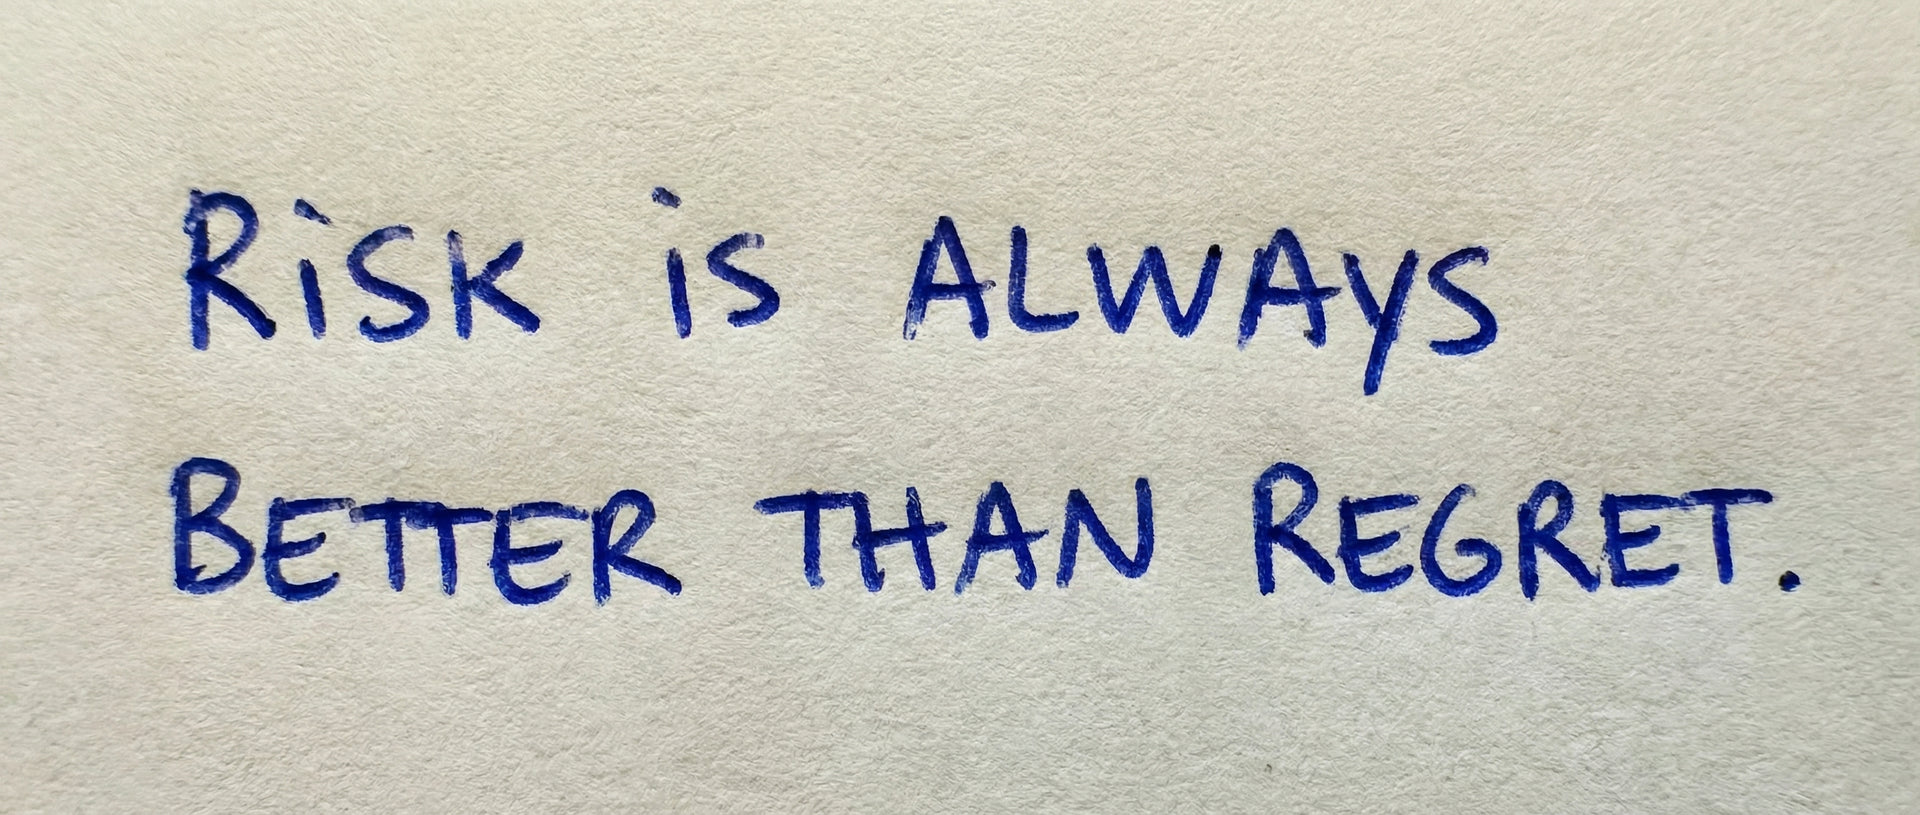 RiSK iS ALWAyS
BETTER THAN REGRET.